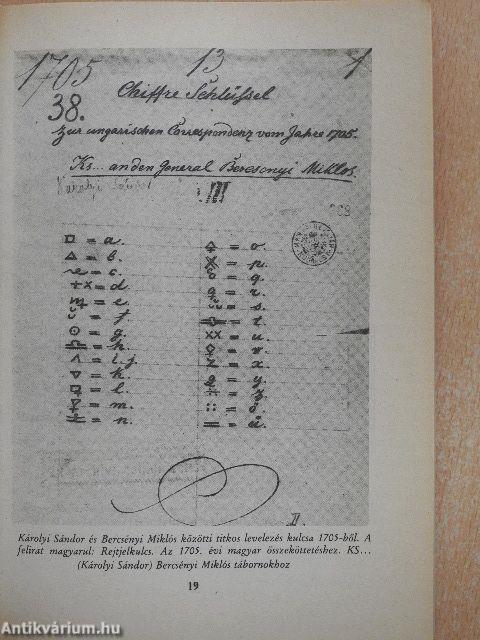 1705 13 1
38.
Chiffre Schlüssel
zur ungarischen Correspondenz vom Jahre 1705.
Ks... an den General Bercsonyi Miklos.
III
= a.
= b.
= c.
= d
= e
= f.
= g.
= h.
= i.j.
= k.
= l.
= m.
= n.
= o.
= p.
= q.
= r.
= s.
= t.
= u.
= v.
= x.
= y.
= z.
= ö
= ü
II.
Károlyi Sándor és Bercsényi Miklós közötti titkos levelezés kulcsa 1705-ből. A
felirat magyarul: Rejtjelkulcs. Az 1705. évi magyar összeköttetéshez. KS...
(Károlyi Sándor) Bercsényi Miklós tábornokhoz
19
Antikvárium.hu